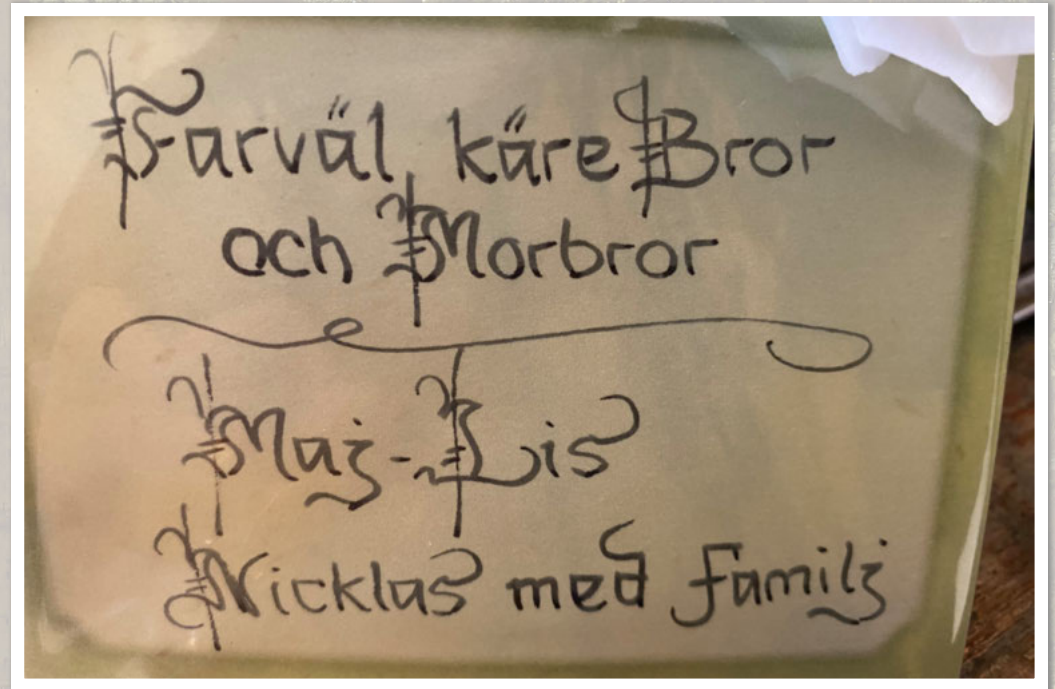 Farväl, käre Bror
och Morbror
Maj-Lis
Nicklas med familj